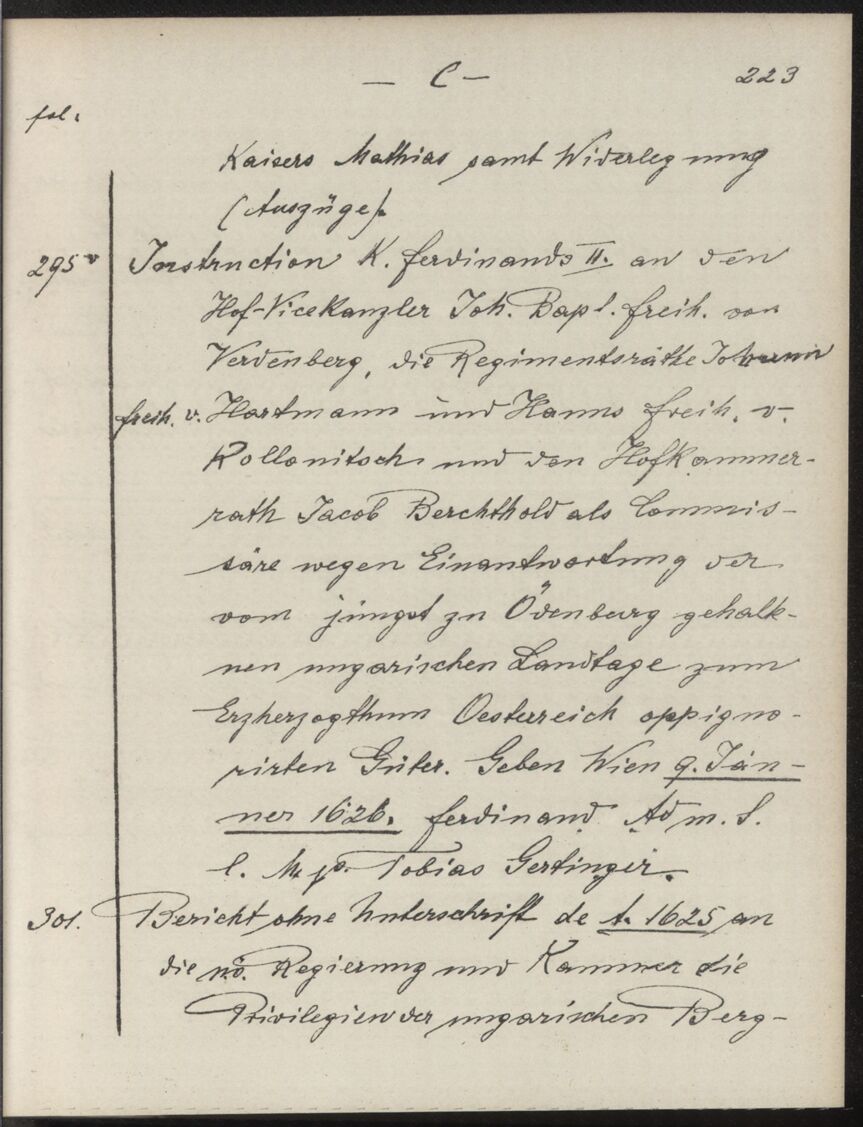 — C — 223
fol.
Kaisers Mathias samt Widerlegnung
(Auszüge).
295v Instruction K. Ferdinands II. an den
Hof-Vicekanzler Joh. Bapt. Freih. von
Verdenberg, die Regimentsräthe Johann
Freih. v. Hartmann und Hanns Freih. v.
Kollonitsch und den Hofkammer-
rath Jacob Berchthold als Commis-
säre wegen Einantwortung der
vom jüngst zu Ödenburg gehalt-
nen ungarischen Landtage zum
Erzherzogthum Oesterreich oppigno-
rirten Güter. Geben Wien 9. Jän-
ner 1626. Ferdinand Ad m. S.
C. M. pp. Tobias Gertinger.
301. Bericht ohne Unterschrift de A. 1625 an
die nö. Regierung und Kammer die
Privilegien der ungarischen Berg-